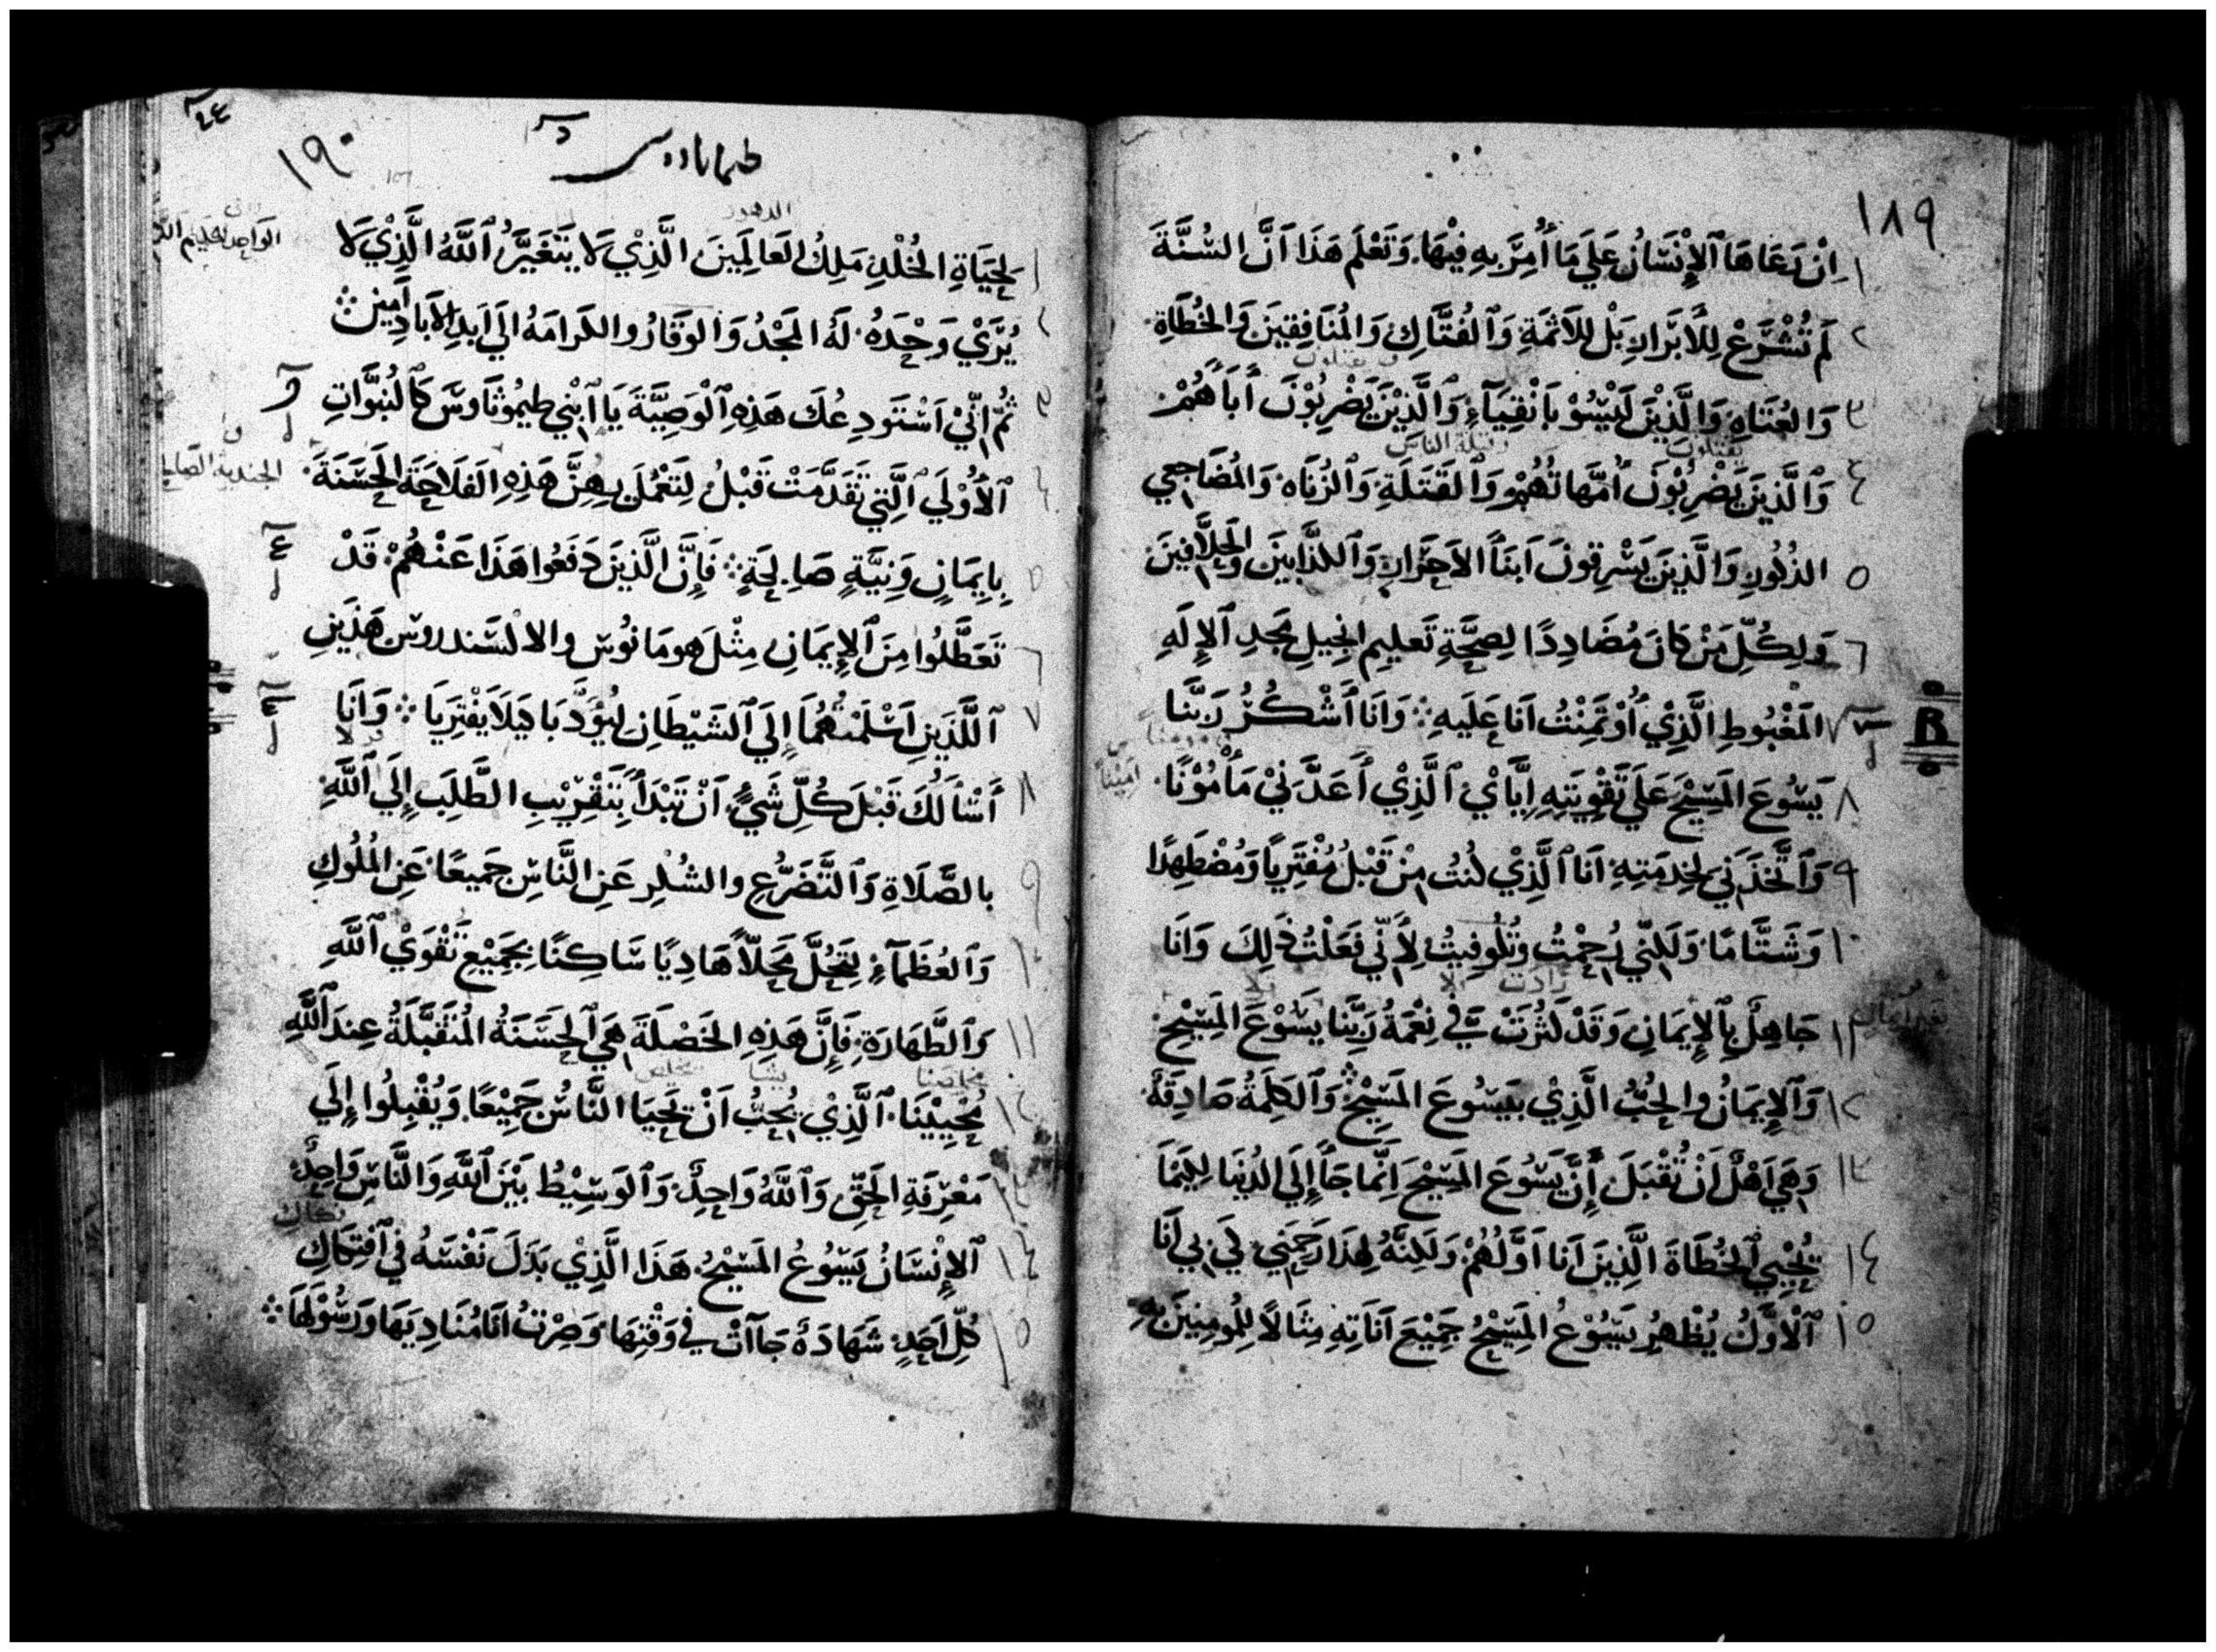 ١٨٩
١ اِنْ رَعَاهَا ٱلإِنْسَانُ عَلَي مَا أُمِرَ بِهِ فِيْهَا. وَتَعْلَم هَذَا اَنَّ السُّنَّةَ
٢ لَم تُشْرَعْ لِلأَبْرَارِ بَلْ لِلاَثَمَةِ وَٱلفُتَّاكِ وَالمُنَافِقِينَ وَالخُطَاةِ
ويقتلون
٣ وَالعُتَاةِ وَالَّذِيْنَ لَيْسُوْ بِاَنْقِيَآءٍ وَٱلَّذِيْنَ يَضْرِبُوْنَ اَبَاَهُمْ
يقتلون وقتلة الناس
٤ وَٱلَّذِينَ يَضْرِبُوْنَ أُمَّهَاتُهُمْ وَٱلقَتَلَةِ وَٱلزُنَاه وَالمُضَاجعِي
٥ الذُكُورِ وَالَّذِينَ يَسْرِقونَ اَبنَاَ الاَحَرَارِ وَٱلكذَّابِينَ وَالحَلاَّفِينَ
٦ وَلِكُلِّ مَنْ كَانَ مُضَادِدًا لِصِحَّةِ تَعلِيمِ انجِيلِ مَجدِ ٱلإِلَهِ
٧ المَغْبُوطِ الَّذِي أُوْتُمِنْتُ اَنَا عَلَيهِ ⁘ وَاَنَا أَشْكُرُ رَبَّنَا
B
٨ يَسُوعَ المَسِيْحَ عَلَي تَقْوِيَتِهِ اِيَّايْ ٱلَّذِيْ أَعَدَّنِيْ مَأْمُوْنًا.
امَيْناً
٩ وَٱتَّخَذَنِي لِخِدمَتِهِ اَنَا ٱلَّذِيْ كُنتُ مِنْ قَبْلُ مُفْتَرِيًا وَمُضْطِهِدًا
١٠ وَشَتَّامًا. وَلَكِنِّي رُحِمْتُ وَتُلُوفِيتُ لِأَنِّي فَعَلْتُ ذَلِكَ وَاَنَا
زادت
١١ جَاهِلٌ بِٱلإِيمَانِ وَقَدْ كَثُرَتْ فِيَّ نِعْمَةُ رَبِّنَا يَسُوْعَ المَسِيْحِ
١٢ وَٱلإِيمَانُ والحُبُّ الَّذِي بِيَسُوعَ المَسِيْحِ ⁘ وَٱلكَلِمَةُ صَادِقَةٌ
١٣ وَهِيَ اَهْلٌ اَنْ تُقْبَلَ. إِنَّ يَسُوعَ المَسِيْحَ اِنَّمَا جَاَ إِلَي الدُنيَا لِكَيْمَا
١٤ يُحْيِيَ ٱلخُطَاةَ الَّذِينَ اَنَا اَوَّلُهُمْ وَلَكِنَّهُ لِهَذَا رَحِمَنِي لِكَي بِي اَنَا
١٥ ٱلْاَوَّلُ يُظْهِرُ يَسُوْعُ المَسِيْحُ جَمِيْعَ اَنَاتِهِ مِثَالاً لِلمُومِنِينَ بِهِ
١٩٠
طيماثاوس
الدهور
١ لِحَيَاةِ الخُلْدِ مَلِكُ العَالَمِينَ الَّذِيْ لَا يَتَغَيَّرُ ٱللَّهُ الَّذِيْ لَا
٢ يُرَيْ وَحْدَهُ لَهُ المَجْدُ وَالوَقَارُ والكَرَامَهُ الَي اَبَدِ الاَبَادِ امين ⁘
٣ ثُمَّ اِنِّيْ اَسْتَودِعُكَ هَذِهِ ٱلْوَصِيَّةَ يَا ٱبْنِي طِيمُوثَاوسَ كَالنُبوَّاتِ
٤ ٱلأُوْلَي ٱلَّتِي تَقَدَّمَتْ قَبْلُ لِتَعْمَلَ بِهِنَّ هَذِهِ الفَلَاحَةَ الحَسَنَةَ
٥ بِإِيمَانٍ وَنِيَّةٍ صَالِحَةٍ ⁘ فَإِنَّ الَّذِينَ دَفَعُوا هَذَا عَنْهُمْ قَدْ
٦ تَعَطَّلُوا مِنَ ٱلإِيمَانِ مِثْلَ هومَانُوس والالسَندروس هَذَينِ
٧ ٱللَّذَينِ اَسْلَمتُهُمَا إِلَي ٱلشَيْطَانِ لِيُؤَدَّبَا كَيلَا يَفْتَرِيَا ⁘ وَاَنَا
٨ أَسْأَلُكَ قَبْلَ كُلِّ شَيٍ اَنْ تَبْدَأ بِتَقْرِيْبِ الطَّلَبِ إِلَي ٱللَّهِ
٩ بالصَّلَاةِ وَٱلتَّضَرُّعِ والشُكْرِ عَنِ النَّاسِ جَمِيعًا. عَنِ المُلُوكِ
١٠ وَٱلعُظَمَآءِ لِتَحُلَّ مَحَلاًّ هَادِيًا سَاكِنًا بِجَمِيْعِ تَقْوَيْ ٱللَّهِ
١١ وَٱلطَّهَارَةِ. فَإِنَّ هَذِهِ الخَصْلَةَ هِيَ ٱلحَسَنَةُ المُتَقَبَّلَةُ عِندَ ٱللَّهِ
مخلصنا يشا يخلص
١٢ مُحْيِيْنَا. ٱلَّذِيْ يُحِبُّ اَنْ يَحْيَا النَّاسُ جَمِيْعًا. وَيُقْبِلُوا إِلَي
١٣ مَعْرِفَةِ الحَقِّ وَٱللَّهُ وَاحِدٌ. وَٱلوَسِيْطُ بَيْنَ ٱللَّهِ وَالنَّاسِ وَاحِدٌ
١٤ ٱلإِنْسَانُ يَسُوعُ المَسِيْحُ. هَذَا الَّذِيْ بَذَلَ نَفْسَهُ فِي ٱفتِكَاكِ
١٥ كُلِّ اَحَدٍ. شَهَادَةٌ جَآاَتْ فِي وَقْتِهَا وَصِرْتُ اَنَا مُنَادِيَهَا وَرَسُوْلَهَا ⁘